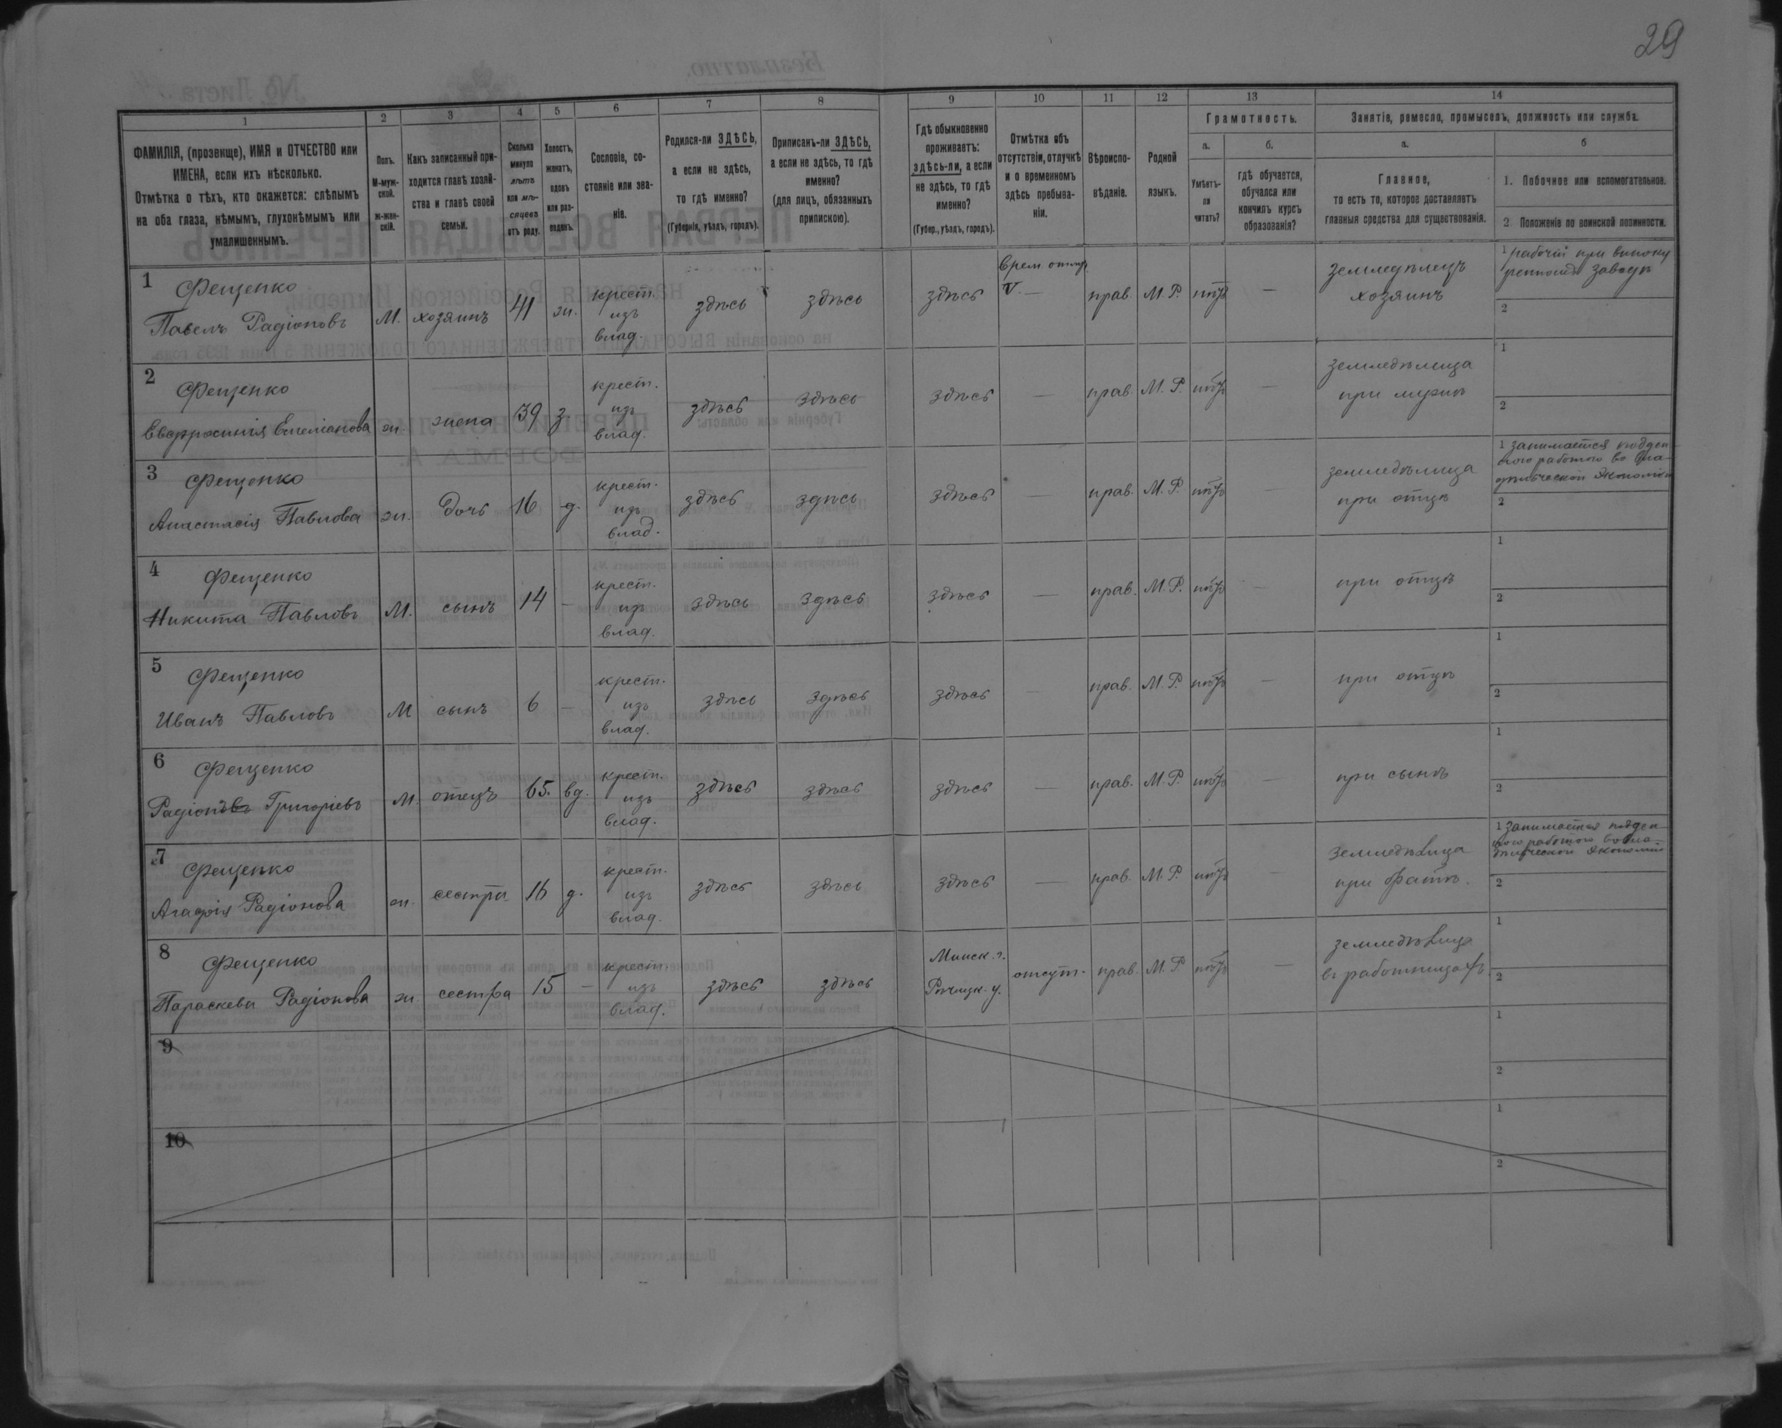 29
1 2 3 4 5 6 7 8 9 10 11 12 13 14
ФАМИЛІЯ, (прозвище), ИМЯ и ОТЧЕСТВО или
ИМЕНА, если ихъ нѣсколько.
Отмѣтка о тѣхъ, кто окажется: слѣпымъ
на оба глаза, нѣмымъ, глухонѣмымъ или
умалишеннымъ.
Полъ.
М-муж-
ской.
Ж-жен-
скій.
Какъ записанный при-
ходится главѣ хозяй-
ства и главѣ своей
семьи.
Сколько
минуло
лѣтъ
или мѣ-
сяцевъ
отъ роду.
Холостъ,
женатъ,
вдовъ
или раз-
веденъ.
Сословіе, со-
стояніе или зва-
ніе.
Родился-ли ЗДѢСЬ,
а если не здѣсь,
то гдѣ именно?
(Губернія, уѣздъ, городъ).
Приписанъ-ли ЗДѢСЬ,
а если не здѣсь, то гдѣ
именно?
(для лицъ, обязанныхъ
припискою).
Гдѣ обыкновенно
проживаетъ:
здѣсь-ли, а если
не здѣсь, то гдѣ
именно?
(Губер., уѣздъ, городъ).
Отмѣтка объ
отсутствіи, отлучкѣ
и о временномъ
здѣсь пребыва-
ніи.
Вѣроиспо-
вѣданіе.
Родной
языкъ.
Грамотность.
а.
Умѣетъ-
ли
читать?
б.
гдѣ обучается,
обучался или
кончилъ курсъ
образованія?
Занятіе, ремесло, промыселъ, должность или служба.
а.
Главное,
то есть то, которое доставляетъ
главныя средства для существованія.
б
1. Побочное или вспомогательное.
2 Положеніе по воинской повинности.
1 Фещенко
Павелъ Радіоновъ М. хозяинъ 41 ж. крест. изъ влад. здѣсь здѣсь здѣсь врем. отлуч. V — прав. М. Р. нѣтъ — земледѣлецъ
хозяинъ
1 рабочій при виноку
ренномъ заводѣ
2
2 Фещенко
Евфросинія Емеліанова ж. жена 39 з крест. изъ влад. здѣсь здѣсь здѣсь — прав. М. Р. нѣтъ — земледѣлица
при мужѣ
1
2
3 Фещенко
Анастасія Павлова ж. дочь 16 д. крест. изъ влад. здѣсь здѣсь здѣсь — прав. М. Р. нѣтъ — земледѣлица
при отцѣ
1 занимается поден
ною работою во вла-
дѣльческой экономіи
2
4 Фещенко
Никита Павловъ М. сынъ 14 — крест. изъ влад. здѣсь здѣсь здѣсь — прав. М. Р. нѣтъ — при отцѣ
1
2
5 Фещенко
Иванъ Павловъ М сынъ 6 — крест. изъ влад. здѣсь здѣсь здѣсь — прав. М. Р. нѣтъ — при отцѣ
1
2
6 Фещенко
Радіонъ Григоріевъ М. отецъ 65. вд. крест. изъ влад. здѣсь здѣсь здѣсь — прав. М. Р. нѣтъ — при сынѣ
1
2
7 Фещенко
Агафія Радіонова ж. сестра 16 д. крест. изъ влад. здѣсь здѣсь здѣсь — прав. М. Р. нѣтъ — земледѣлица
при братѣ.
1 занимается поден
ною работою во вла-
дѣльческой экономіи
2
8 Фещенко
Параскева Радіонова ж. сестра 15 — крест. изъ влад. здѣсь здѣсь Минск. г.
Рѣчицк. у. отсут. прав. М. Р. нѣтъ — земледѣлица
въ работницахъ
1
2
9
1
2
10
1
2